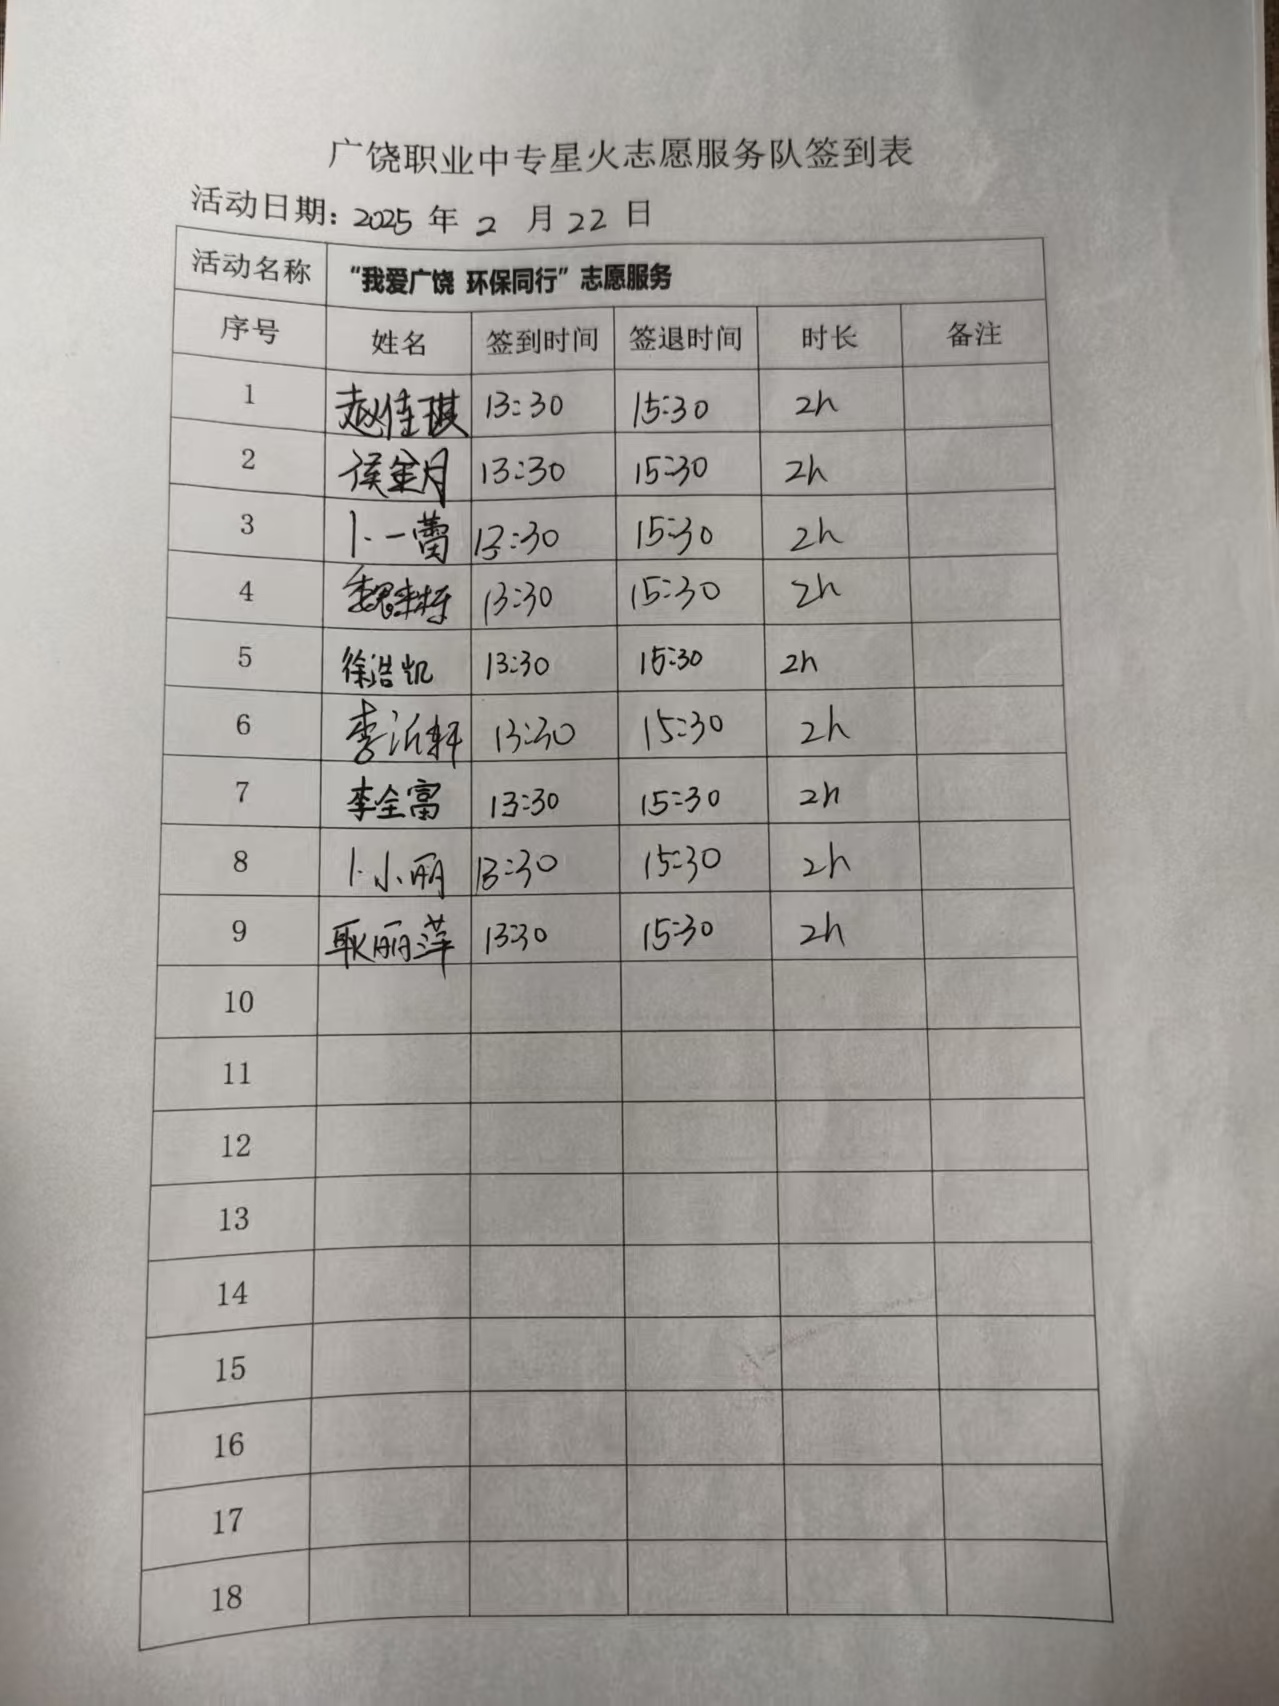 广饶职业中专星火志愿服务队签到表
活动日期: 2025 年 2 月 22 日
活动名称 “我爱广饶 环保同行”志愿服务
序号 姓名 签到时间 签退时间 时长 备注
1 赵佳琪 13:30 15:30 2h
2 侯金月 13:30 15:30 2h
3 卜一蕾 13:30 15:30 2h
4 13:30 15:30 2h
5 徐浩凯 13:30 15:30 2h
6 李沂轩 13:30 15:30 2h
7 李全富 13:30 15:30 2h
8 卜小丽 13:30 15:30 2h
9 耿丽萍 13:30 15:30 2h
10
11
12
13
14
15
16
17
18